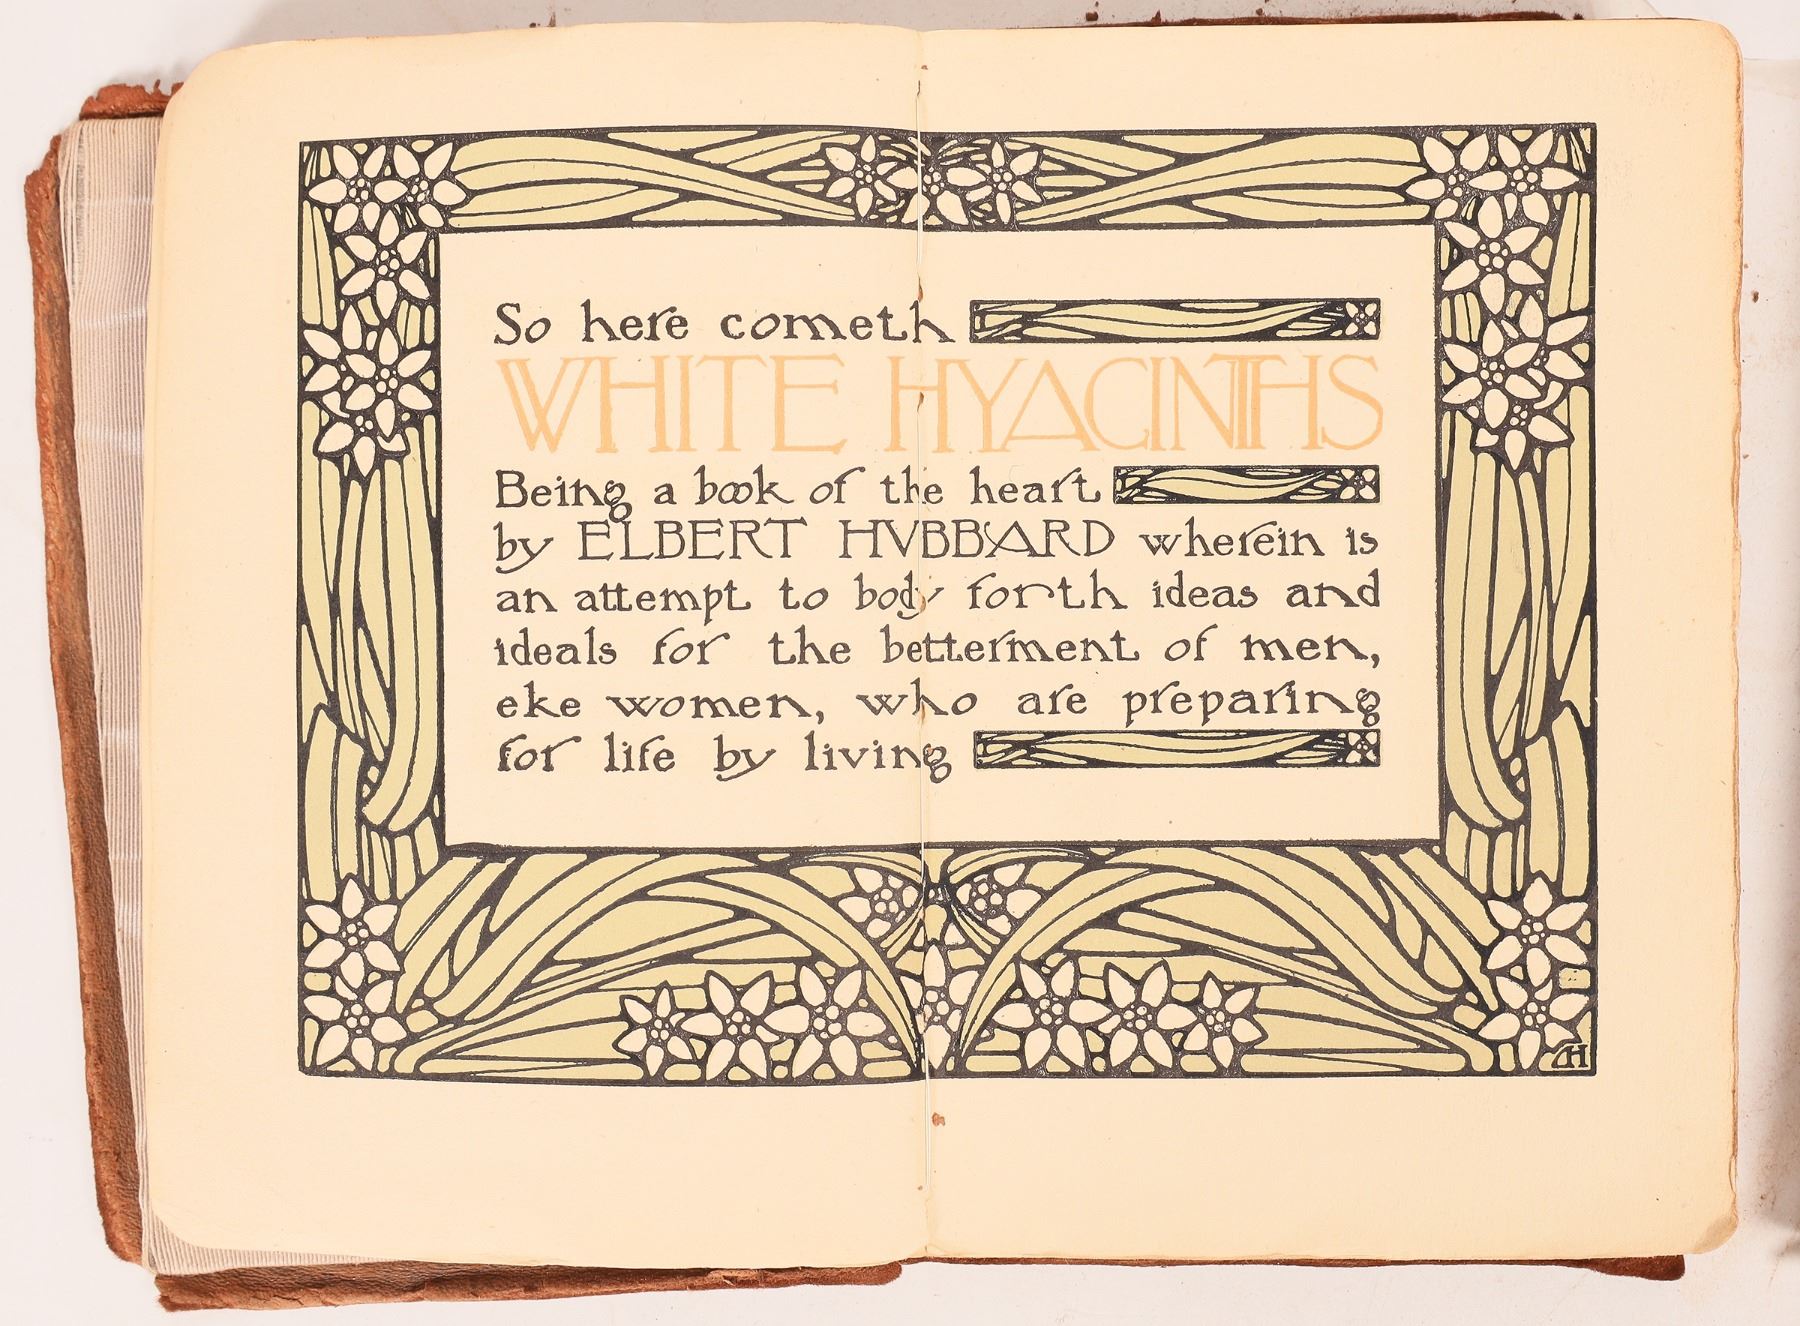 So here cometh
WHITE HYACINTHS
Being a book of the heart
by ELBERT HVBBARD wherein is
an attempt to body forth ideas and
ideals for the betterment of men,
eke women, who are preparing
for life by living
DH